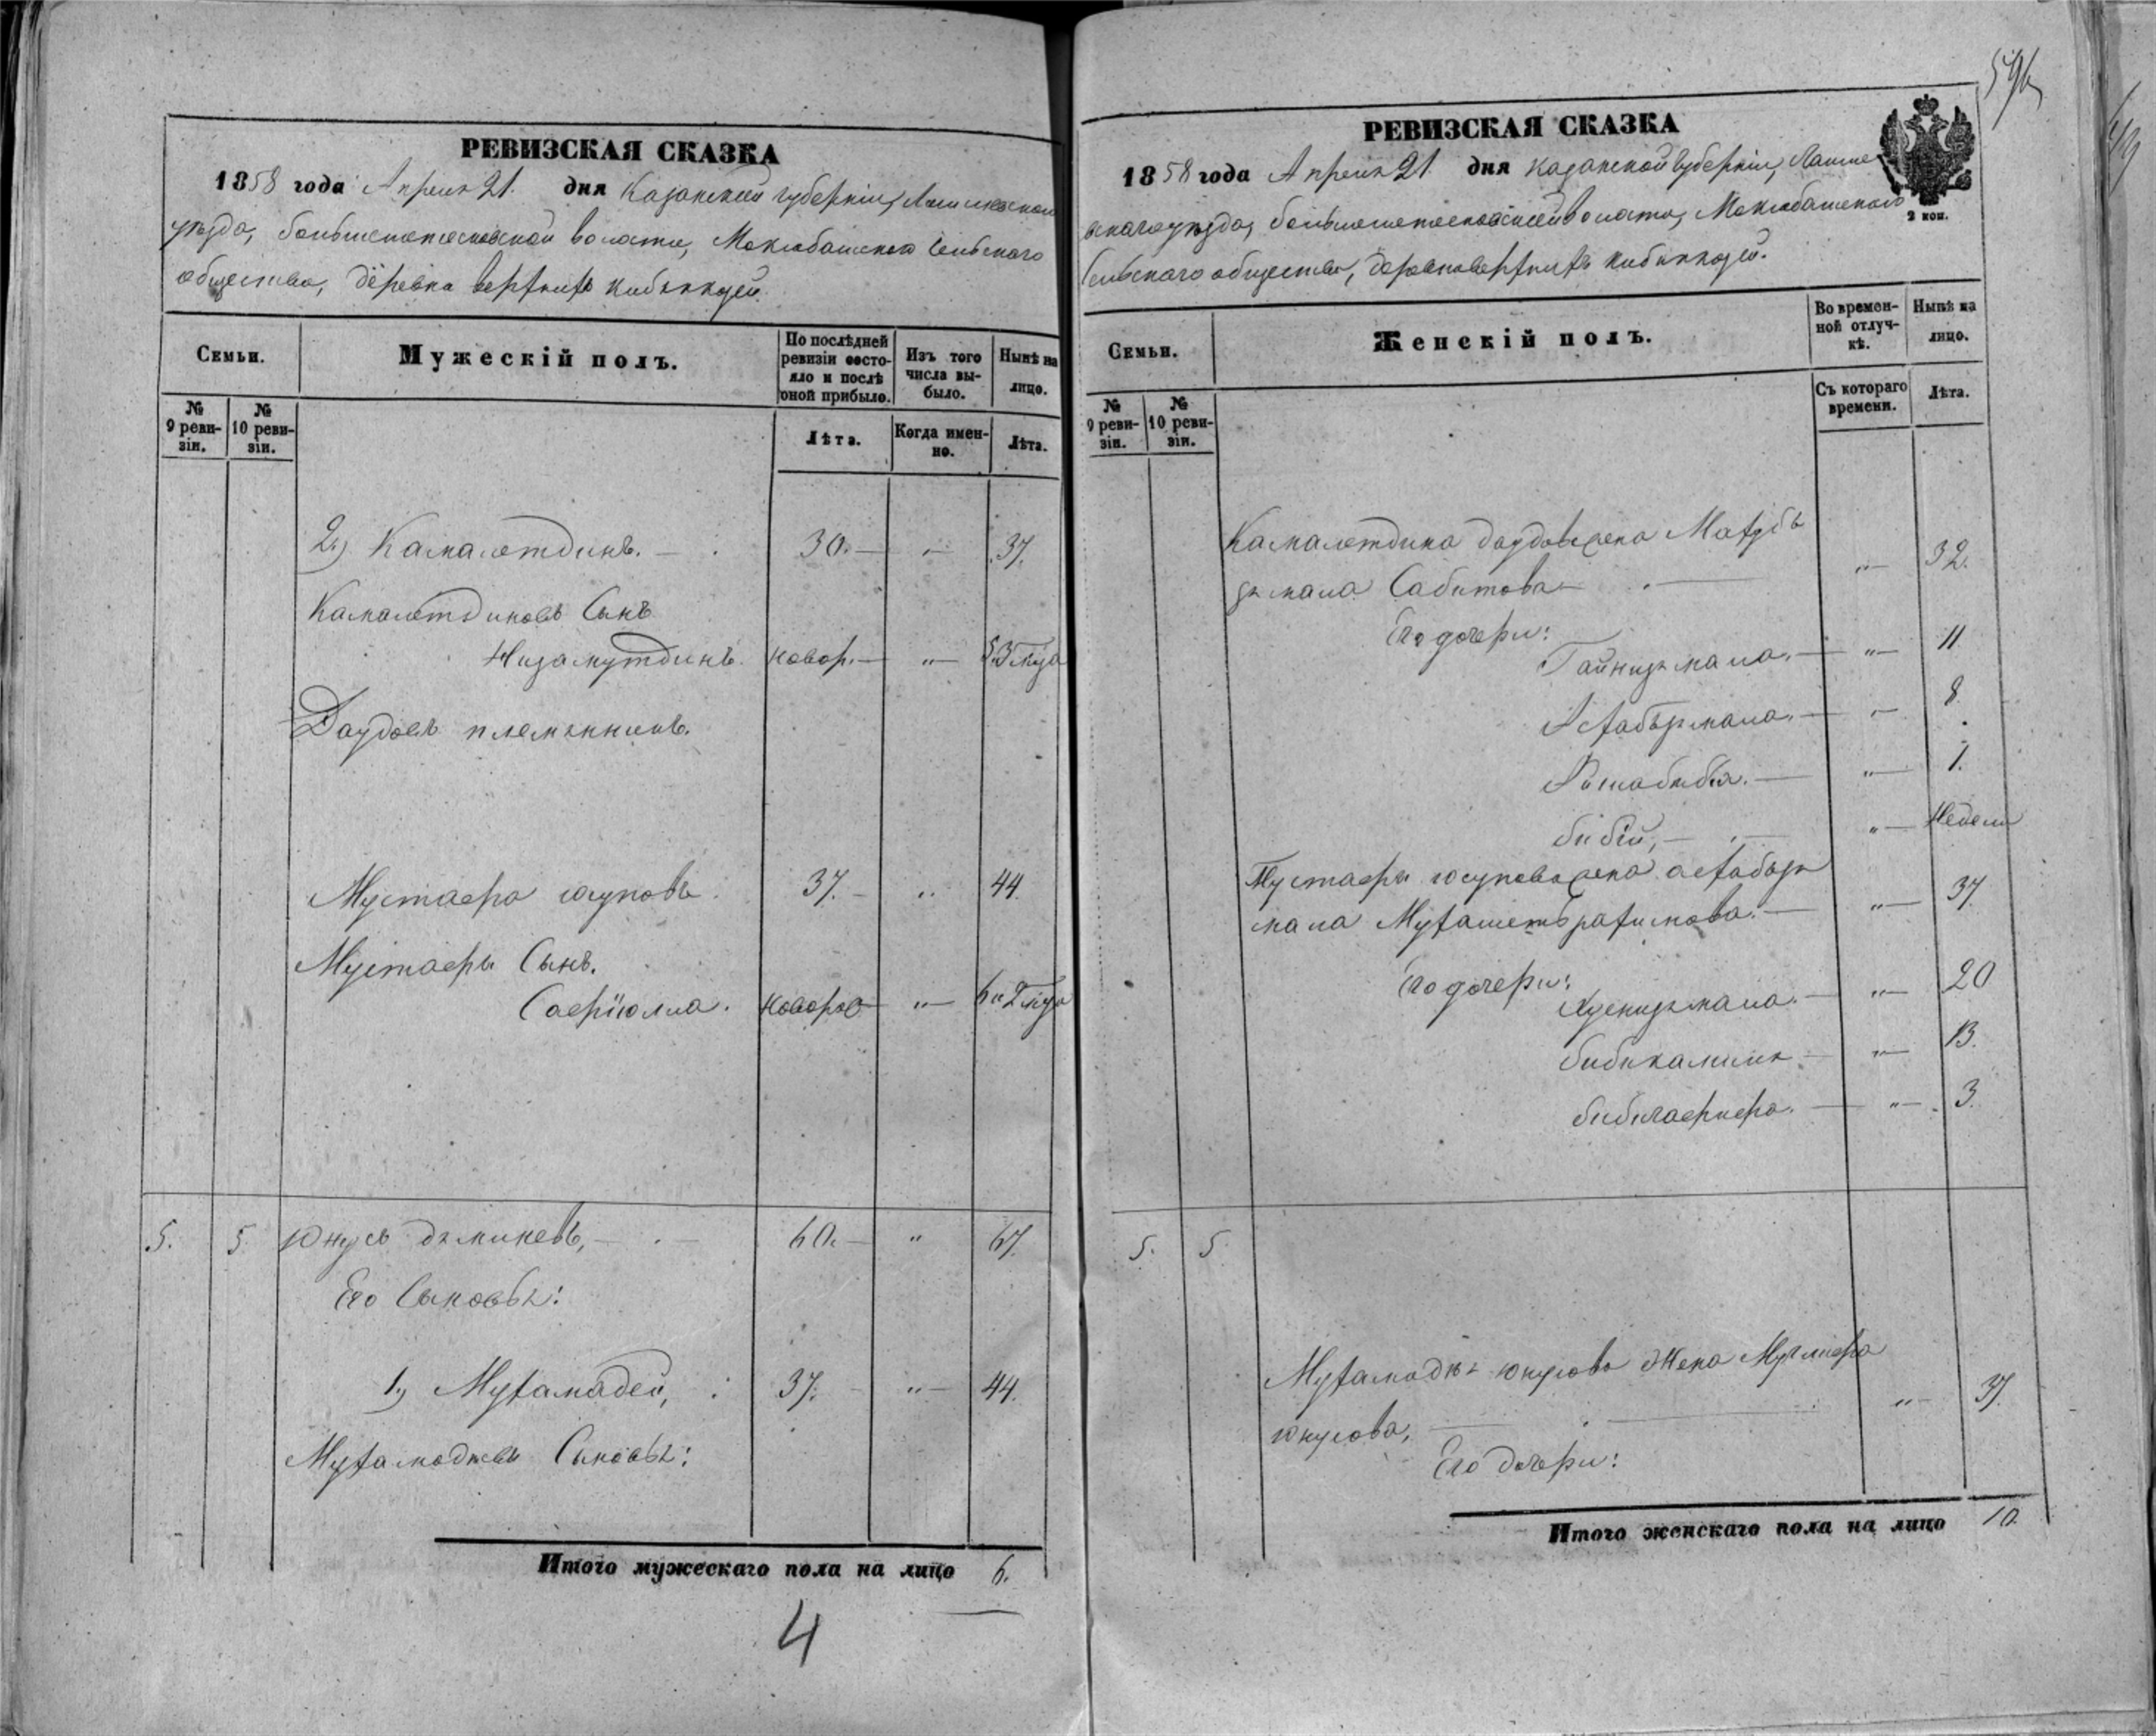 РЕВИЗСКАЯ СКАЗКА
1858 года Апреля 21. дня Казанской губерніи, Лаишевскаго
уѣзда, Большеметесковской волости, Мокшабашскаго Сельскаго
общества, деревня верхнихъ Кибякозей.
Семьи.
Мужескій полъ.
По послѣдней ревизіи состояло и послѣ оной прибыло.
Изъ того числа выбыло.
Нынѣ на лицо.
№ 9 ревизіи.
№ 10 ревизіи.
Лѣта.
Когда именно.
Лѣта.
2.) Камалетдинъ. — 30. — „ — 37.
Камалетдиновъ Сынъ
Низамутдинъ. новор. — „ —
Даудовъ племянникъ.
Мустафа юсуповъ. 37. — „ 44.
Мустафы Сынъ.
Сафіюлла. новорож — „ —
5. 5. Юнусъ Деминевъ, — 60. — „ 67.
Его Сыновья:
1.) Мухамадей, 37. — „ — 44.
Мухамадеевы Сыновья:
Итого мужескаго пола на лицо 6.
4
596
РЕВИЗСКАЯ СКАЗКА
1858 года Апреля 21. дня Казанской губерніи, Лаише
вскаго уѣзда, Большеметесковской волости, Мокшабашскаго
Сельскаго общества, деревня верхнихъ Кибякозей.
2 коп.
Семьи.
Женскій полъ.
Во временной отлучкѣ.
Нынѣ на лицо.
№ 9 ревизіи.
№ 10 ревизіи.
Съ котораго времени.
Лѣта.
Камалетдина Даудова жена Махуб
зямала Сабитова — „ — 32.
Его дочери:
Гайнизямала. — „ — 11.
Асхабзямала. — „ 8.
— „ — 1.
бибій, — „ — Недели
Мустафы юсупова жена асхабзя
мала Мухаметрахимова. — „ — 37.
Его дочери:
Хуснизямала. — „ — 20
бибикамиля — „ — 13.
— „ — 3.
5. 5.
Мухамадея юнусова жена
юнусова, — „ — 37.
Его дочери:
Итого женскаго пола на лицо 10.